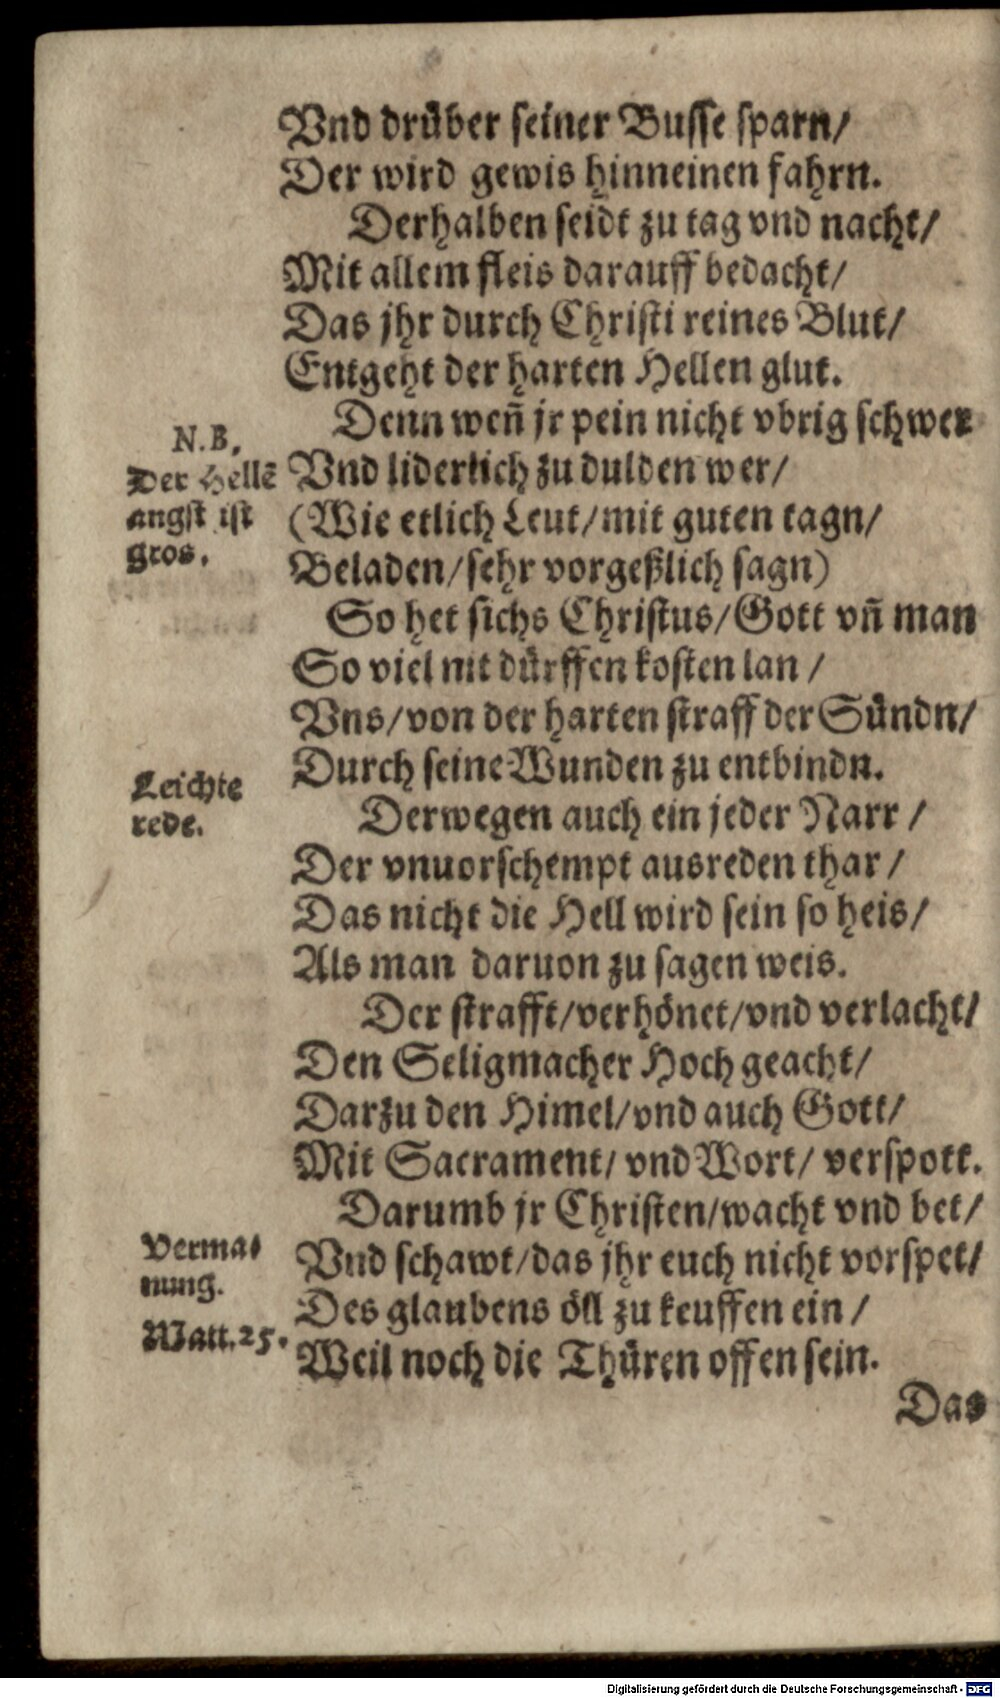 Vnd drüber seiner Busse sparn/
Der wird gewis hinneinen fahrn.
Derhalben seidt zu tag vnd nacht/
Mit allem fleis darauff bedacht/
Das jhr durch Christi reines Blut/
Entgeht der harten Hellen glut.
Denn weñ jr pein nicht vbrig schwer
N.B.
Der Hellẽ
angst ist
gros.
Vnd liderlich zu dulden wer/
(Wie etlich Leut/mit guten tagn/
Beladen/sehr vorgeßlich sagn)
So het sichs Christus/Gott vñ man
So viel nit dürffen kosten lan/
Vns/von der harten straff der Sündn/
Durch seine Wunden zu entbindn.
Leichte
rede.
Derwegen auch ein jeder Narr/
Der vnuorschempt ausreden thar/
Das nicht die Hell wird sein so heis/
Als man daruon zu sagen weis.
Der strafft/verhönet/vnd verlacht/
Den Seligmacher Hoch geacht/
Darzu den Himel/vnd auch Gott/
Mit Sacrament/vnd Wort/verspott.
Darumb jr Christen/wacht vnd bet/
Verma-
nung.
Matt.25.
Vnd schawt/das jhr euch nicht vorspet/
Des glaubens öll zu keuffen ein/
Weil noch die Thüren offen sein.
Das
Digitalisierung gefördert durch die Deutsche Forschungsgemeinschaft - DFG